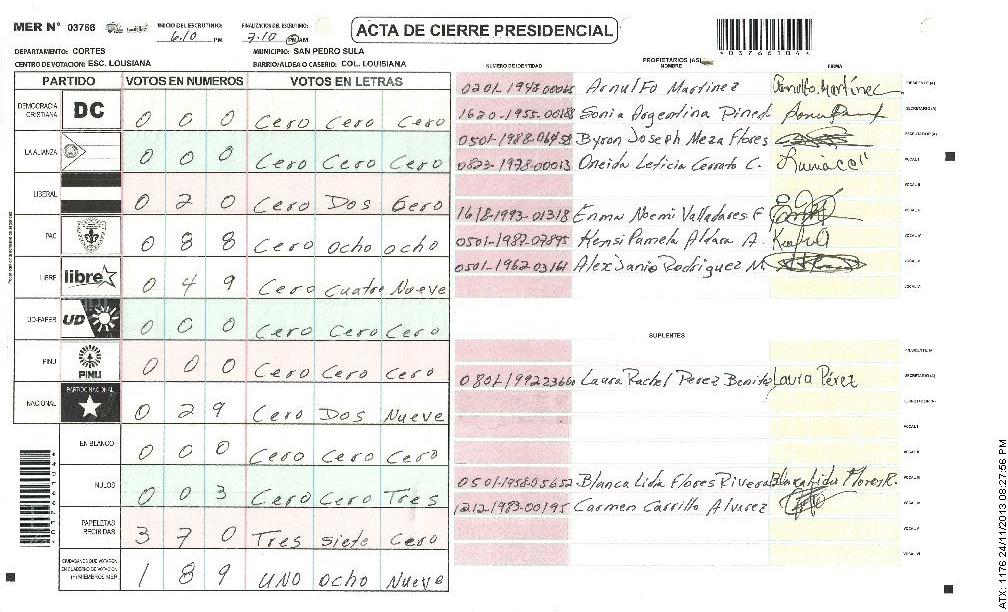 MER N° 03766 INICIO DEL ESCRUTINIO: 6:10 PM FINALIZACION DEL ESCRUTINIO: 7:10 PM AM
ACTA DE CIERRE PRESIDENCIAL
*03766104*
DEPARTAMENTO: CORTES MUNICIPIO: SAN PEDRO SULA
CENTRO DE VOTACION: ESC. LOUSIANA BARRIO/ALDEA O CASERIO: COL. LOUISIANA
PARTIDO VOTOS EN NUMEROS VOTOS EN LETRAS
DEMOCRACIA CRISTIANA DC 0 0 0 Cero Cero Cero
LA ALIANZA 0 0 0 Cero Cero Cero
LIBERAL 0 2 0 Cero Dos Cero
PAC 0 8 8 Cero ocho ocho
LIBRE libre 0 4 9 Cero Cuatro Nueve
UD-FAPER UD 0 0 0 Cero Cero Cero
PINU PINU 0 0 0 Cero Cero Cero
NACIONAL PARTIDO NACIONAL 0 2 9 Cero Dos Nueve
EN BLANCO 0 0 0 Cero Cero Cero
NULOS 0 0 3 Cero Cero Tres
PAPELETAS RECIBIDAS 3 7 0 Tres siete Cero
CIUDADANOS QUE VOTARON EN CUADERNO DE VOTACION (+) MIEMBROS MER 1 8 9 UNO ocho Nueve
PROPIETARIOS (AS)
NUMERO DE IDENTIDAD NOMBRE FIRMA
Arnulfo Martinez Arnulfo Martínez PRESIDENTE (A)
1620-1955-00188 Sonia Argentina Pined SECRETARIO (A)
0501-1988-06458 Byron Joseph Meza Flores ESCRUTADOR (A)
0823-1978-00013 Oneida Leticia Cerrato C. VOCAL I
VOCAL II
1618-1993-01318 Enma Noemi Valladares F VOCAL III
0501-1987-07895 Hensi Pamela Aldana A. VOCAL IV
0501-1962-03161 Alex Janio Rodriguez M. VOCAL V
VOCAL VI
SUPLENTES
PRESIDENTE (A)
Laura Rachel Perez Benitez Laura Pérez SECRETARIO (A)
ESCRUTADOR (A)
VOCAL I
VOCAL II
0501-1958-05652 Blanca Lida Flores Rivera Blanca Lida Flores R. VOCAL III
1212-1983-00195 Carmen Carrillo Alvarez VOCAL IV
VOCAL V
VOCAL VI
ATX: 1176 24/11/2013 08:27:56 PM